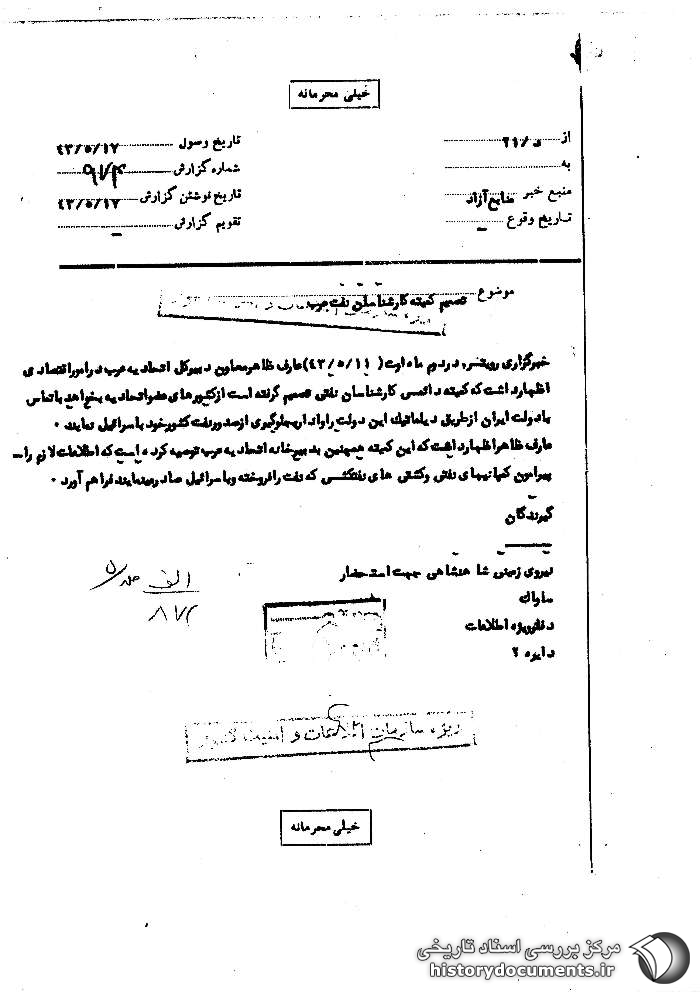 خیلی محرمانه
از ۲۱/د
به
منبع خبر منابع آزاد
تاریخ وقوع -
تاریخ وصول ۴۳/۵/۱۷
شماره گزارش ۹۷۴
تاریخ نوشتن گزارش ۴۳/۵/۱۷
تقویم گزارش -
موضوع تصمیم کمیته کارشناسان نفت عرب
خبرگزاری رویتر, در دوم ماه اوت (۴۳/۵/۱۱) عارف ظاهر معاون دبیرکل اتحادیه عرب در امور اقتصادی
اظهار داشت که کمیته دائمی کارشناسان نفتی تصمیم گرفته است از کشورهای عضو اتحادیه بخواهد با تماس
با دولت ایران از طریق دیپلماتیک این دولت را وادار بجلوگیری از صدور نفت کشور خود باسرائیل نمایند ۰
عارف ظاهر اظهار داشت که این کمیته همچنین بدبیرخانه اتحادیه عرب توصیه کرده است که اطلاعات لازم را
پیرامون کمپانیهای نفتی و کشتی های نفتکشی که نفت را فروخته و باسرائیل صادر مینمایند فراهم آورد ۰
گیرندگان
نیروی زمینی شاهنشاهی جهت استحضار
ساواک
دفتر ویژه اطلاعات
دایره ۲
الف
۸۷۲
ویژه سازمان اطلاعات و امنیت کشور
خیلی محرمانه
مرکز بررسی اسناد تاریخی
historydocuments.ir